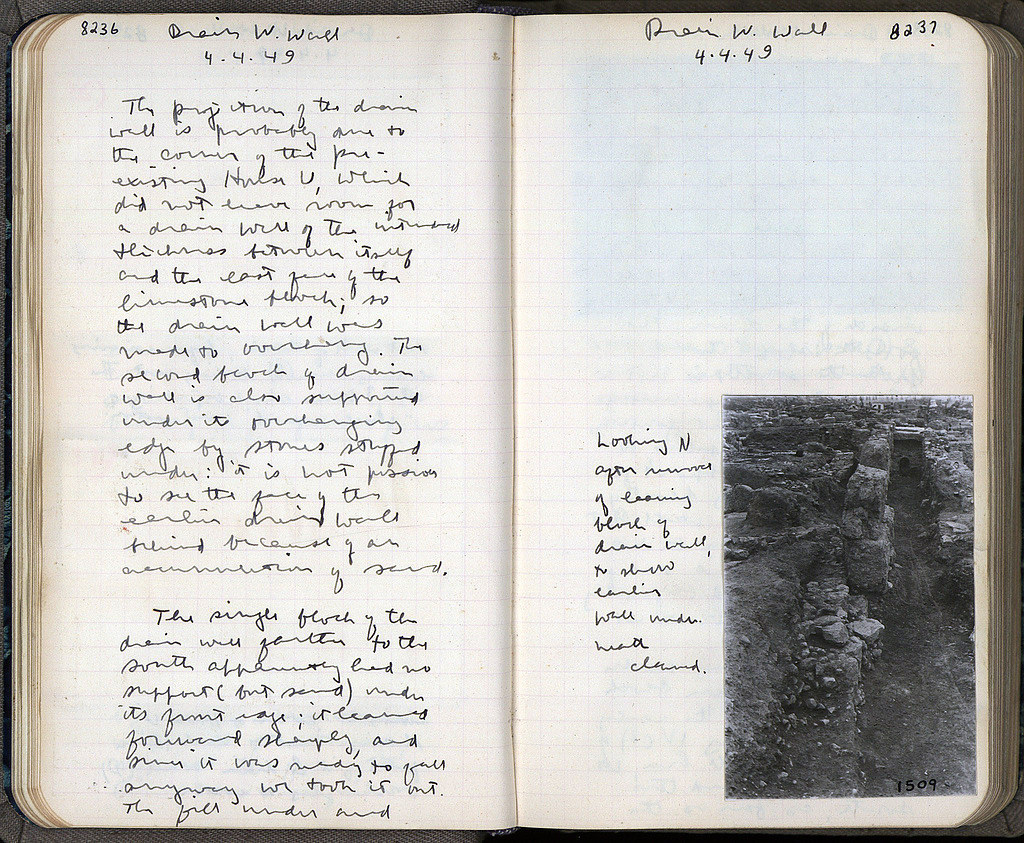 8236 Drain W. Wall
4.4.49
The projection of the drain
wall is probably due to
the corner of the pre-
existing House U, which
did not leave room for
a drain wall of the intended
thickness between itself
and the east face of the
limestone block; so
the drain wall was
made to overhang. The
second block of drain
wall is also supported
under its overhanging
edge by stones stuffed
under: it is not possible
to see the face of the
earlier drain wall
behind because of an
accumulation of sand.
The single block of the
drain wall farther to the
south apparently had no
support (but sand) under
its front edge; it leaned
forward sharply, and
since it was ready to fall
anyway we took it out.
The fill under and
Drain W. Wall 8237
4.4.49
Looking N
after removal
of leaning
block of
drain wall,
to show
earlier
wall under-
neath
cleaned.
1509